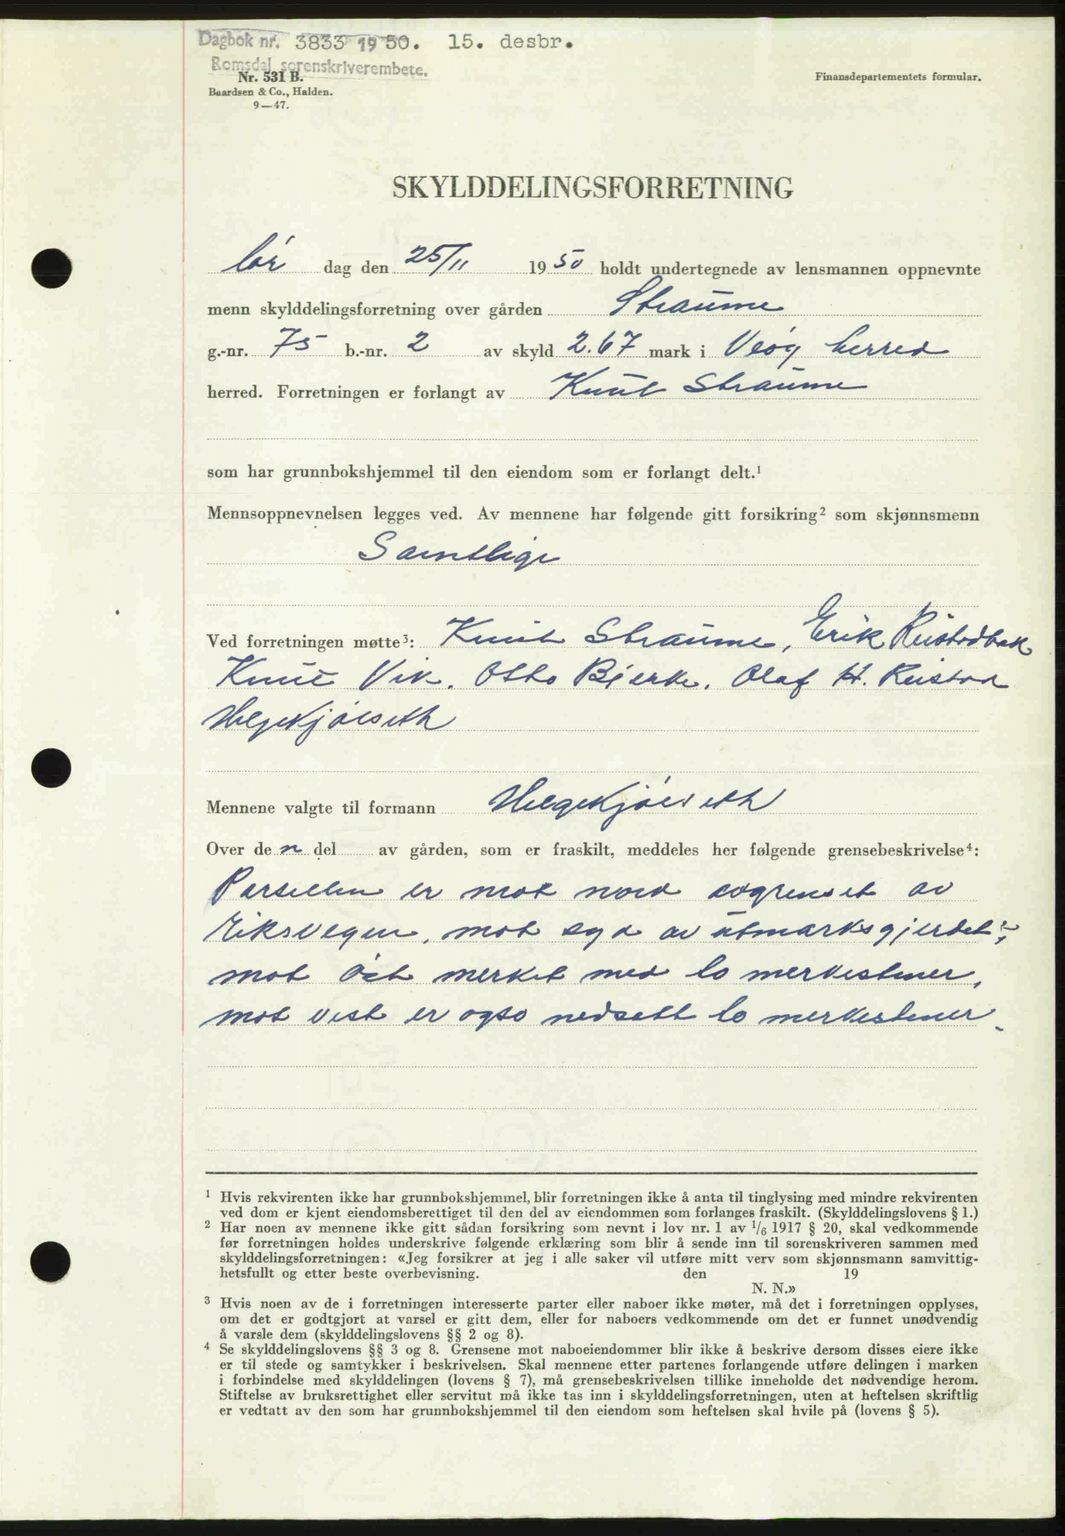 Dagbok nr. 3833 19 50. 15. desbr.
Romsdal sorenskriverembete.
Nr. 531 B.
Baardsen & Co., Halden.
9—47.
Finansdepartementets formular.
SKYLDDELINGSFORRETNING
lör dag den 25/11 1950 holdt undertegnede av lensmannen oppnevnte
menn skylddelingsforretning over gården Straume
g.-nr. 75 b.-nr. 2 av skyld 2.67 mark i Veøy herred
herred. Forretningen er forlangt av Knut Straume
som har grunnbokshjemmel til den eiendom som er forlangt delt.¹
Mennsoppnevnelsen legges ved. Av mennene har følgende gitt forsikring² som skjønnsmenn
Samtlige
Ved forretningen møtte³: Knut Straume, Erik Reistadbak
Knut Vik. Otto Bjerke. Olaf H. Reistad
Helge Kjölseth
Mennene valgte til formann Helge Kjölseth
Over den del av gården, som er fraskilt, meddeles her følgende grensebeskrivelse⁴:
Parsellen er mot nord avgrenset av
Riksvegen, mot syd av utmarksgjerdet,
mot öst merket med to merkestener,
mot vest er også nedsatt to merkestener.
¹ Hvis rekvirenten ikke har grunnbokshjemmel, blir forretningen ikke å anta til tinglysing med mindre rekvirenten
ved dom er kjent eiendomsberettiget til den del av eiendommen som forlanges fraskilt. (Skylddelingslovens § 1.)
² Har noen av mennene ikke gitt sådan forsikring som nevnt i lov nr. 1 av 1/6 1917 § 20, skal vedkommende
før forretningen holdes underskrive følgende erklæring som blir å sende inn til sorenskriveren sammen med
skylddelingsforretningen: «Jeg forsikrer at jeg i alle saker vil utføre mitt verv som skjønnsmann samvittig-
hetsfullt og etter beste overbevisning. den 19
N. N.»
³ Hvis noen av de i forretningen interesserte parter eller naboer ikke møter, må det i forretningen opplyses,
om det er godtgjort at varsel er gitt dem, eller for naboers vedkommende om det er funnet unødvendig
å varsle dem (skylddelingslovens §§ 2 og 8).
⁴ Se skylddelingslovens §§ 3 og 8. Grensene mot naboeiendommer blir ikke å beskrive dersom disses eiere ikke
er til stede og samtykker i beskrivelsen. Skal mennene etter partenes forlangende utføre delingen i marken
i forbindelse med skylddelingen (lovens § 7), må grensebeskrivelsen tillike inneholde det nødvendige herom.
Stiftelse av bruksrettighet eller servitut må ikke tas inn i skylddelingsforretningen, uten at heftelsen skriftlig
er vedtatt av den som har grunnbokshjemmel til den eiendom som heftelsen skal hvile på (lovens § 5).